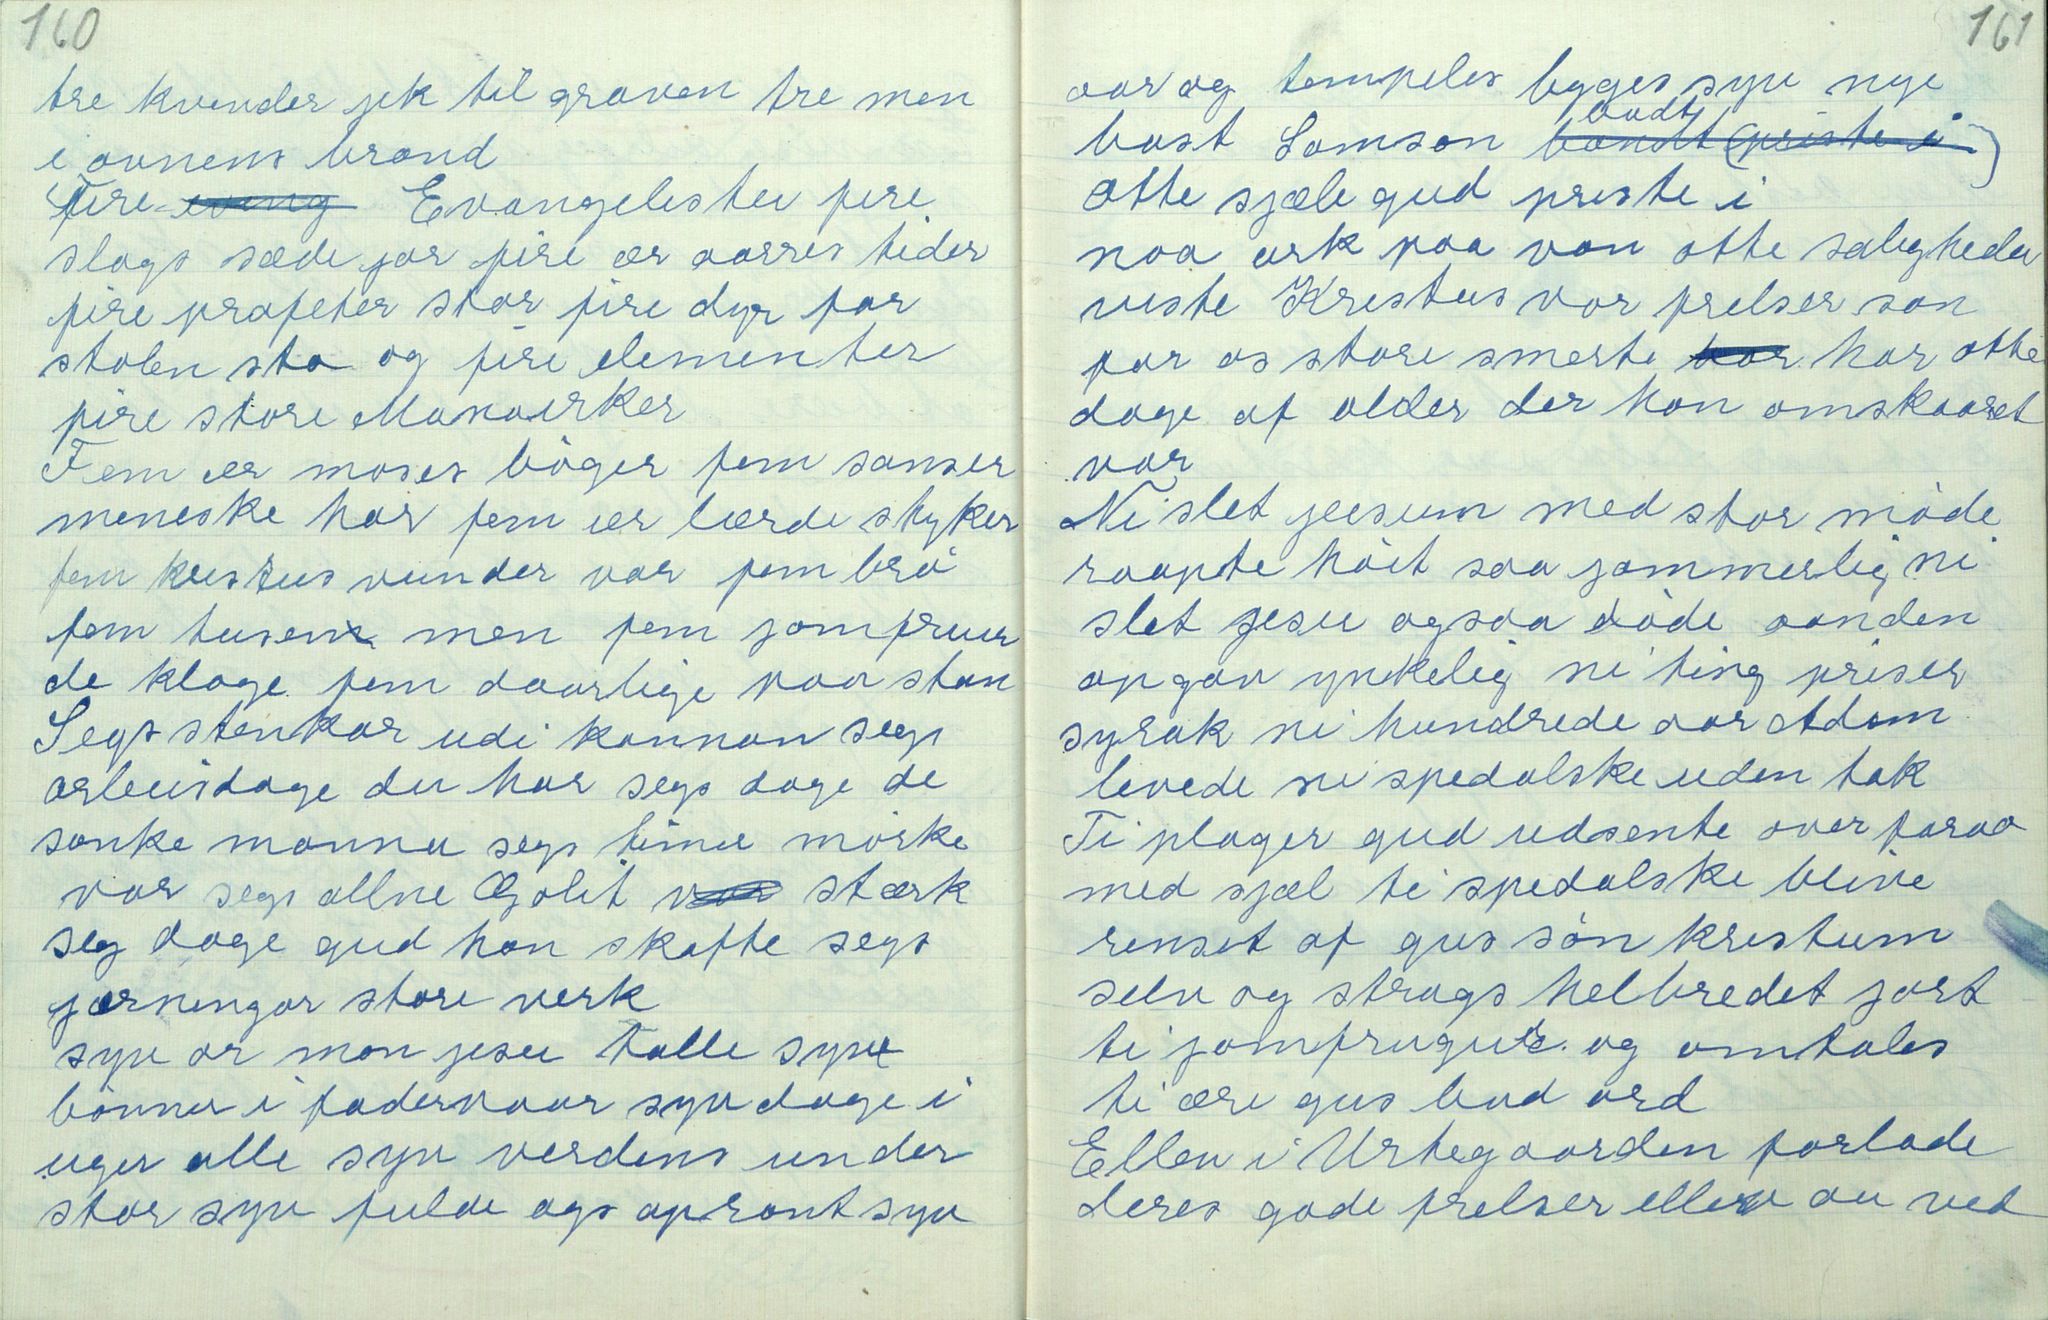 160
tre kvender jek til graven tre men
i ovnens brand
Fire eveng Evangelester fire
slags sæde jor fire ær aarres tider
fire profeter stor fire dyr for
stolen sto og fire elementer
fire store Monarker
Fem ær moses bøger fem sanser
meneske har fem ær lærde styker
fem kristus vunder var fem brø
fem tusen men fem jomfruer
de kloge fem daarlige von stan
Segs stenkar udi kannan segs
arbeisdage du har segs dage de
sanke manna segs timer mørke
var segs allne Golit var stærk
seg dage gud han skafte segs
jærnengar store verk
syv or mon jesu talle syv
bønner i fadervaar syv dage i
uger alle syv verdens under
stor syv fulde ags oprant syv
161
aar og tempeles byges syv nye
bast Samson bandt budt (priste i)
Otte sjæle gud priste i
noa ark paa van otte saligheder
viste Kristus vor frelser son
for os store smerte bar har otte
dage af alder der han omskaaret
var
Ni slet jeesum med stor møde
raapte høit saa jammerlig ni
slet jesu ogsaa døde aanden
opgav ynkelig ni ting priser
syrak ni hundrede aar Adam
levede ni spedalske uden tak
Ti plager gud udsente over farao
med sjæl ti spedalske blive
renset af gus søn kristum
selv og strags helbredet jort
ti jomfruguer og omtales
ti ære gus bud ord
Ellev i Urtegaarden forlode
deres gode frelser ellev au ved